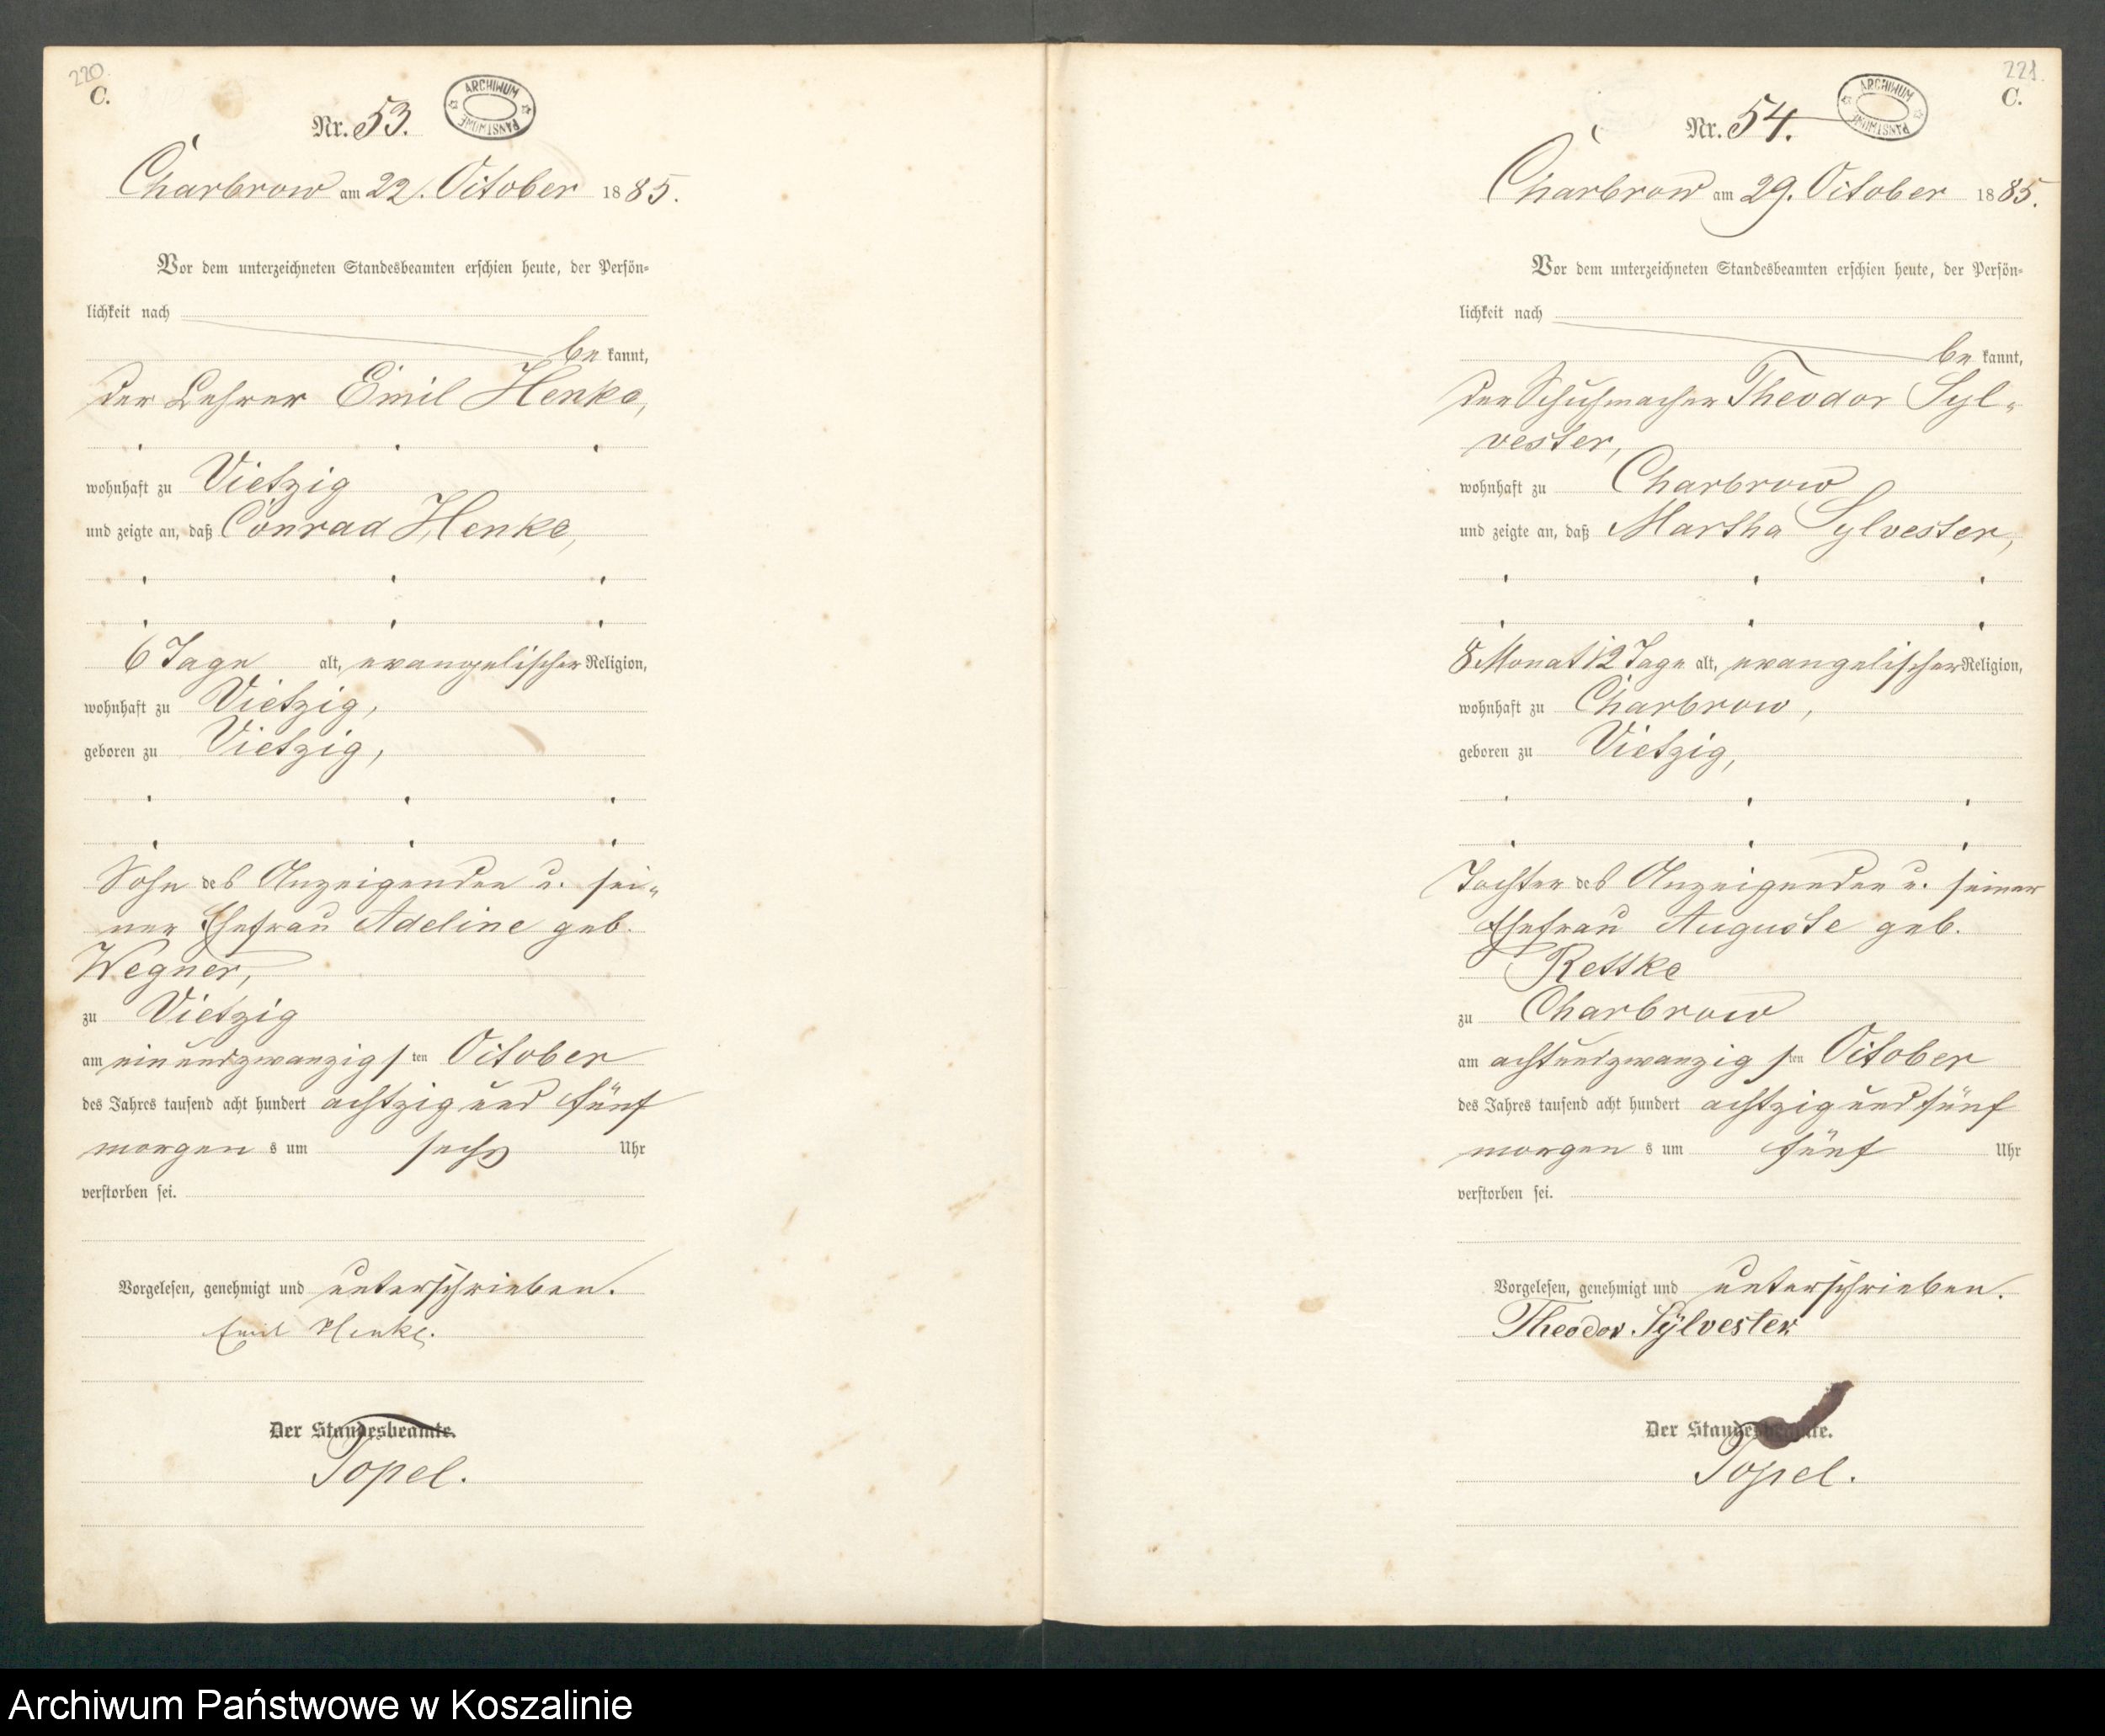 220
C.
Nr. 53.
ARCHIWUM PAŃSTWOWE
Charbrow am 22. October 1885.
Vor dem unterzeichneten Standesbeamten erschien heute, der Persön-
lichkeit nach
be kannt,
der Lehrer Emil Henke,
wohnhaft zu Vietzig
und zeigte an, daß Conrad Henke,
6 Tage alt, evangelischer Religion,
wohnhaft zu Vietzig,
geboren zu Vietzig,
Sohn des Anzeigenden u. sei-
ner Ehefrau Adeline geb.
Wegner,
zu Vietzig
am einundzwanzigsten October
des Jahres tausend acht hundert achtzig und fünf
morgens um sechs Uhr
verstorben sei.
Vorgelesen, genehmigt und unterschrieben.
Emil Henke.
Der Standesbeamte.
Topel.
221.
C.
Nr. 54.
ARCHIWUM PAŃSTWOWE
Charbrow am 29. October 1885.
Vor dem unterzeichneten Standesbeamten erschien heute, der Persön-
lichkeit nach
be kannt,
der Schuhmacher Theodor Syl-
vester,
wohnhaft zu Charbrow
und zeigte an, daß Martha Sylvester,
8 Monat 12 Tage alt, evangelischer Religion,
wohnhaft zu Charbrow,
geboren zu Vietzig,
Tochter des Anzeigenden u. seiner
Ehefrau Auguste geb.
Rettke
zu Charbrow
am achtundzwanzigsten October
des Jahres tausend acht hundert achtzig und fünf
morgens um fünf Uhr
verstorben sei.
Vorgelesen, genehmigt und unterschrieben.
Theodor Sÿlvester.
Der Standesbeamte.
Topel.
Archiwum Państwowe w Koszalinie